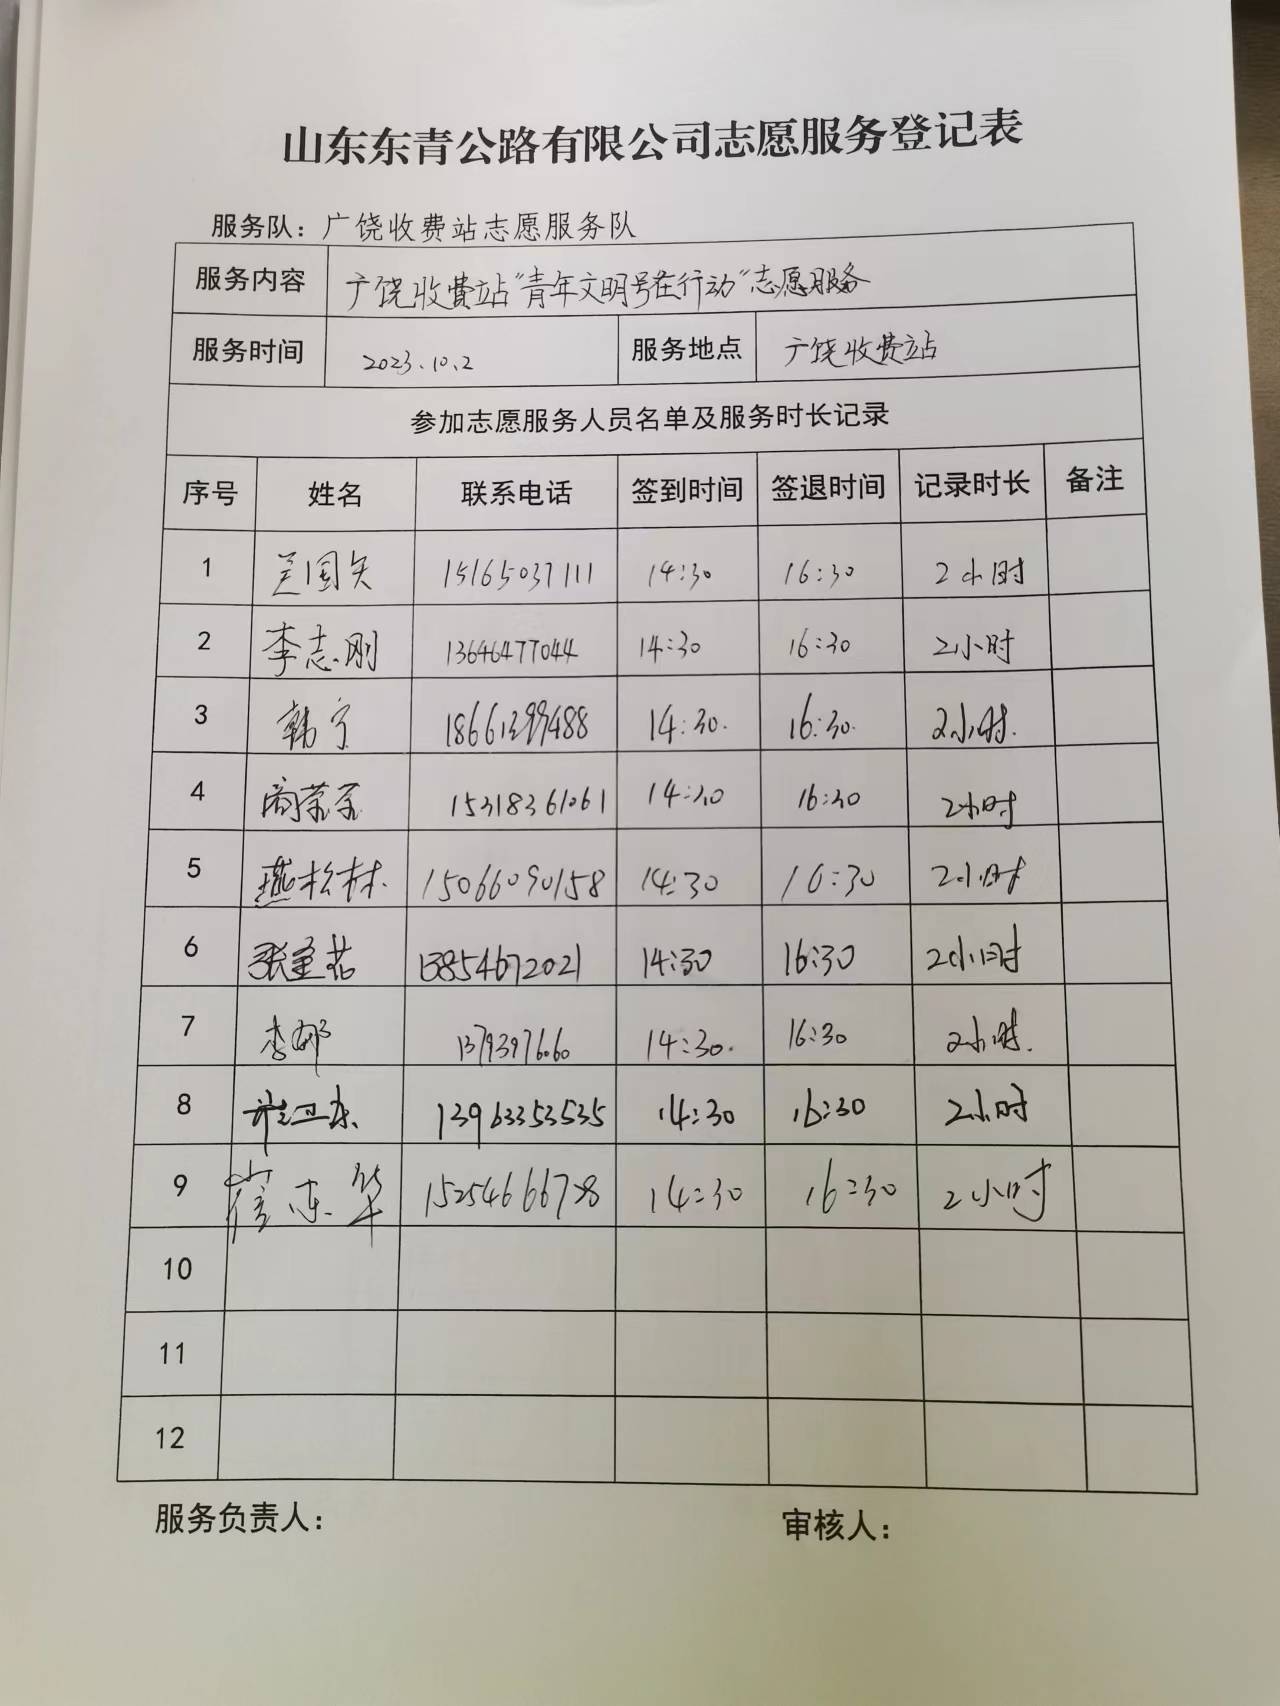 山东东青公路有限公司志愿服务登记表
服务队：广饶收费站志愿服务队
服务内容 广饶收费站“青年文明号在行动”志愿服务
服务时间 2023.10.2 服务地点 广饶收费站
参加志愿服务人员名单及服务时长记录
序号 姓名 联系电话 签到时间 签退时间 记录时长 备注
1 15165037111 14:30 16:30 2小时
2 李志刚 13646477044 14:30 16:30 2小时
3 韩宁 18661399488 14:30. 16:30. 2小时.
4 15318361061 14:30 16:30 2小时
5 燕松林. 15066090158 14:30 16:30 2小时
6 13854672021 14:30 16:30 2小时
7 李郁 13793976060 14:30. 16:30 2小时.
8 13963353535 14:30 16:30 2小时
9 崔东华 15254666728 14:30 16:30 2小时
10
11
12
服务负责人： 审核人：